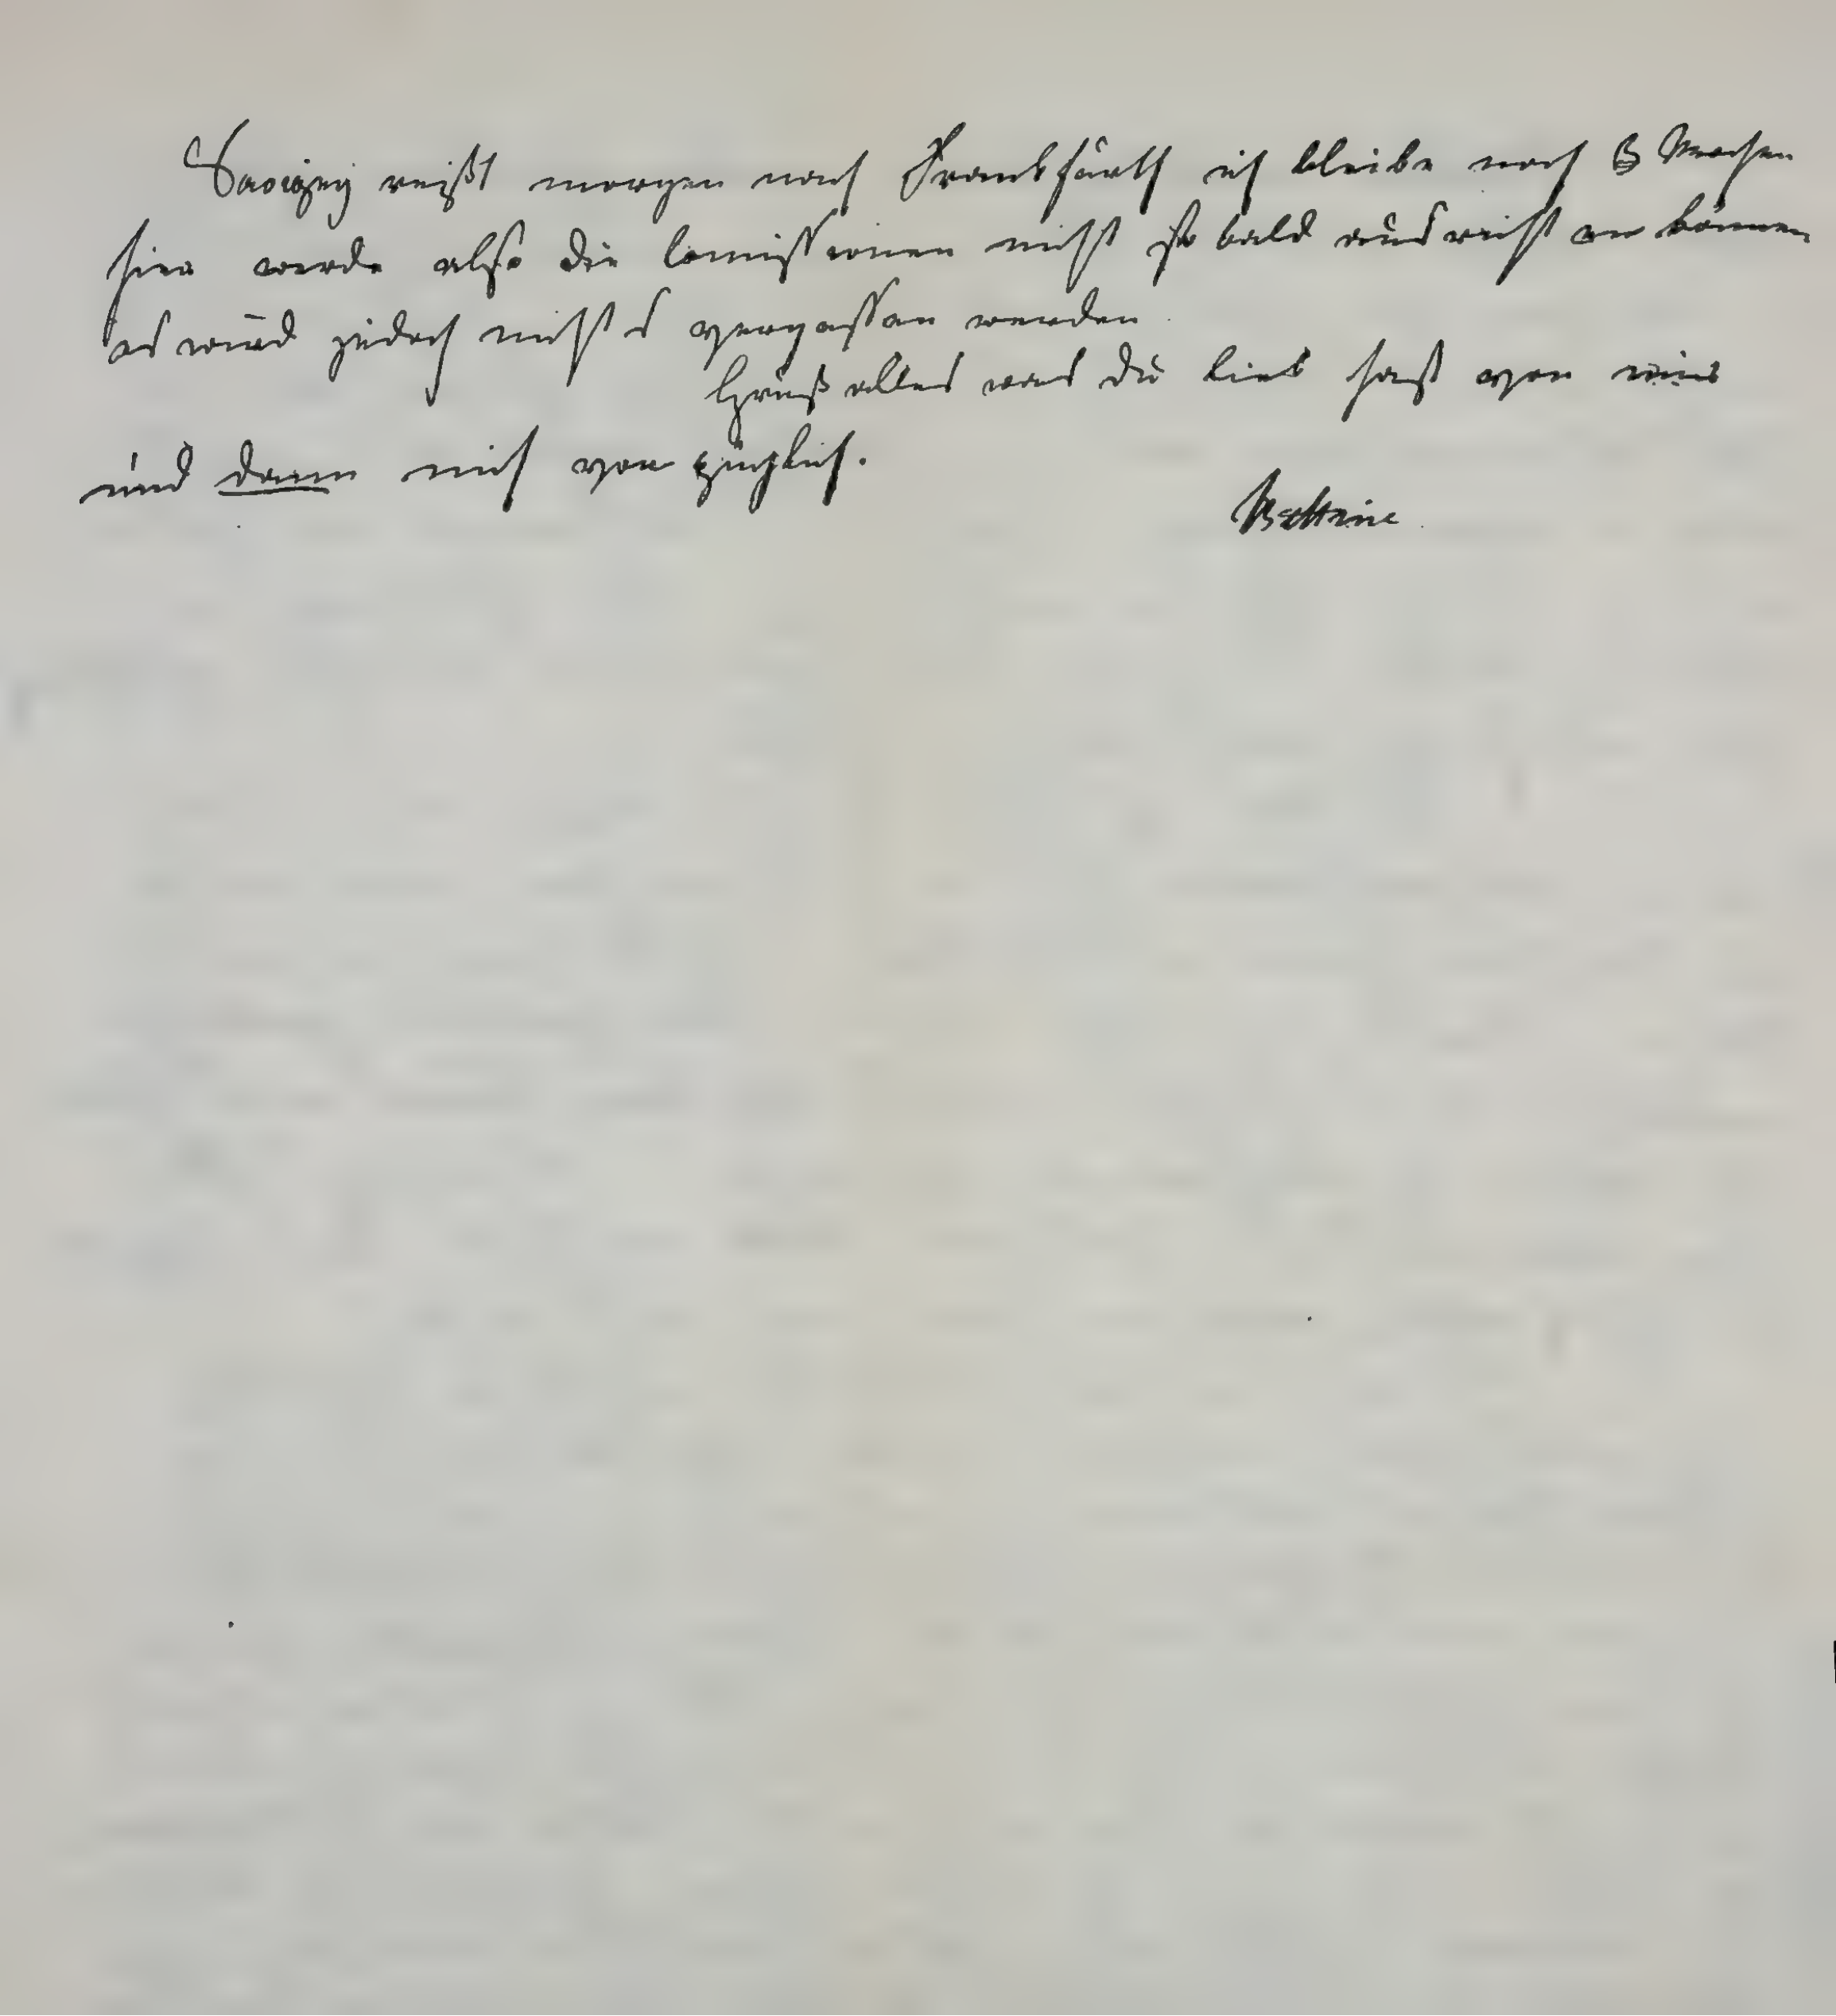 Savigny reißt morgen nach Frankfurth ich bleibe noch 3 Wochen
hier werde also die Comissionen nicht so bald ausrichten können
es wird jedoch nichts vergessen werden
Grüß alles was du lieb hast von mir
und dann mich vorzüglich.
Bettine